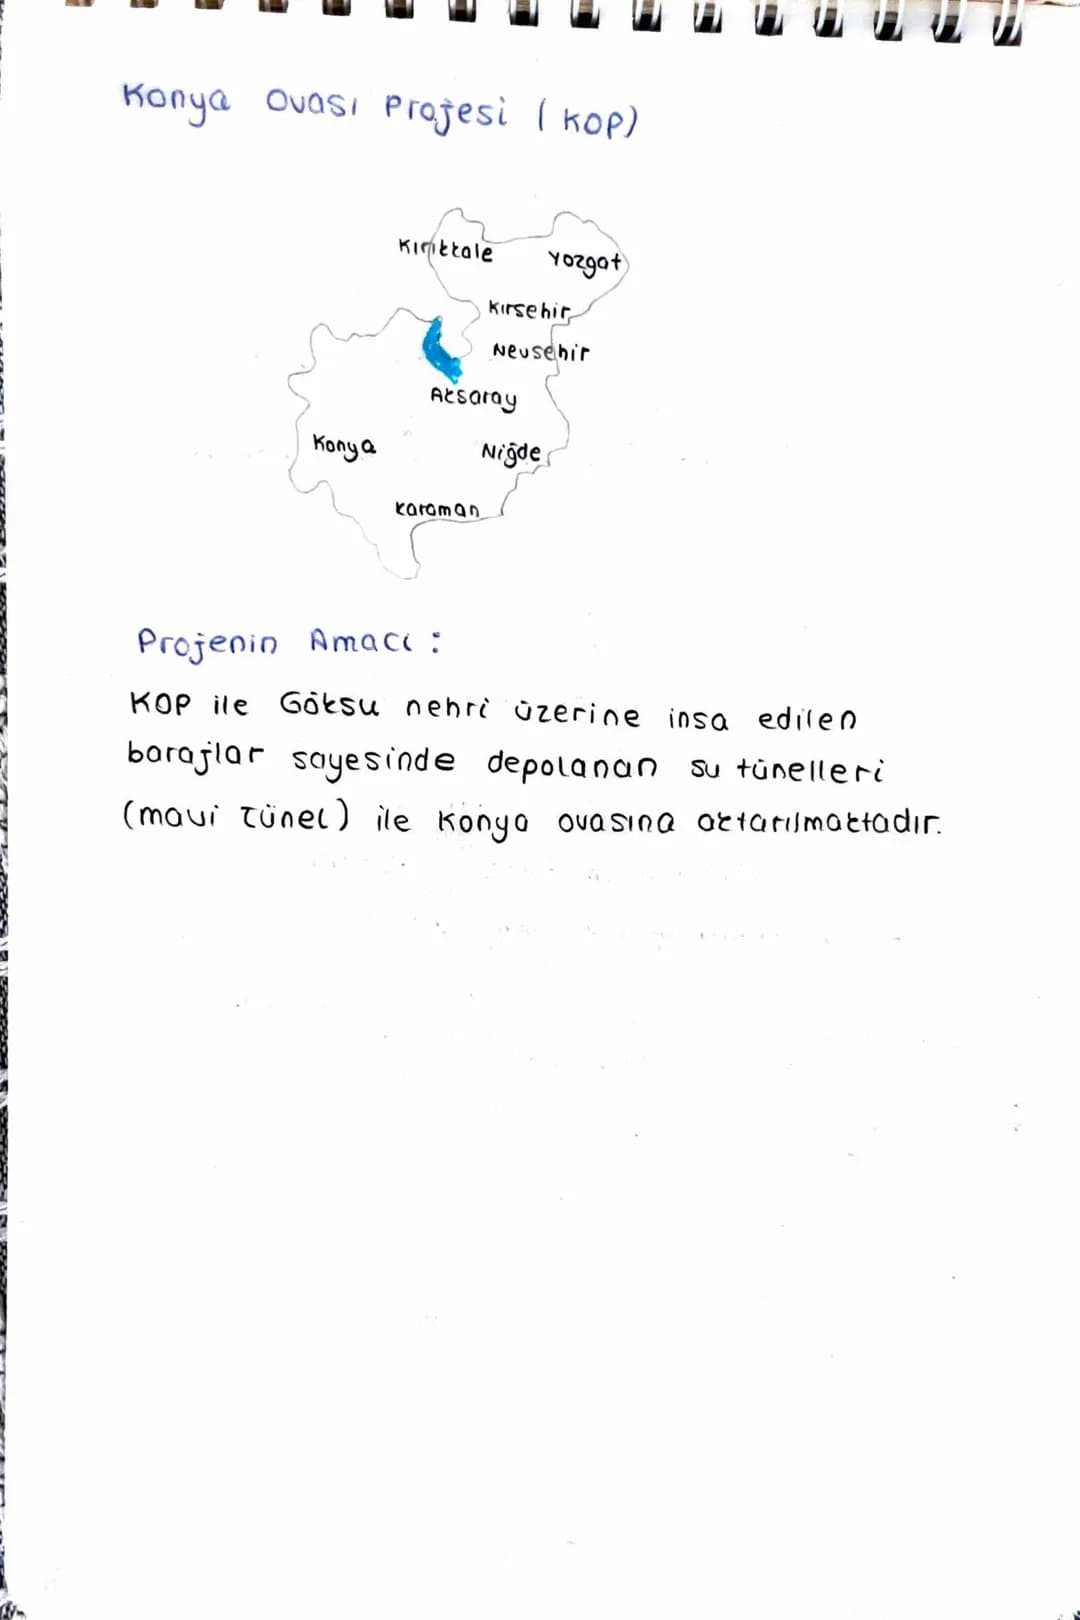 Konya Ovası Projesi (KOP)
Kırıkkale
Yozgat
Kırsehir
Nevsehir
Aksaray
Konya
Niğde
Karaman
Projenin Amacı :
KOP ile Göksu nehri üzerine insa edilen
barajlar sayesinde depolanan su tünelleri
(mavi Tünel) ile Konya ovasına aktarılmaktadır.